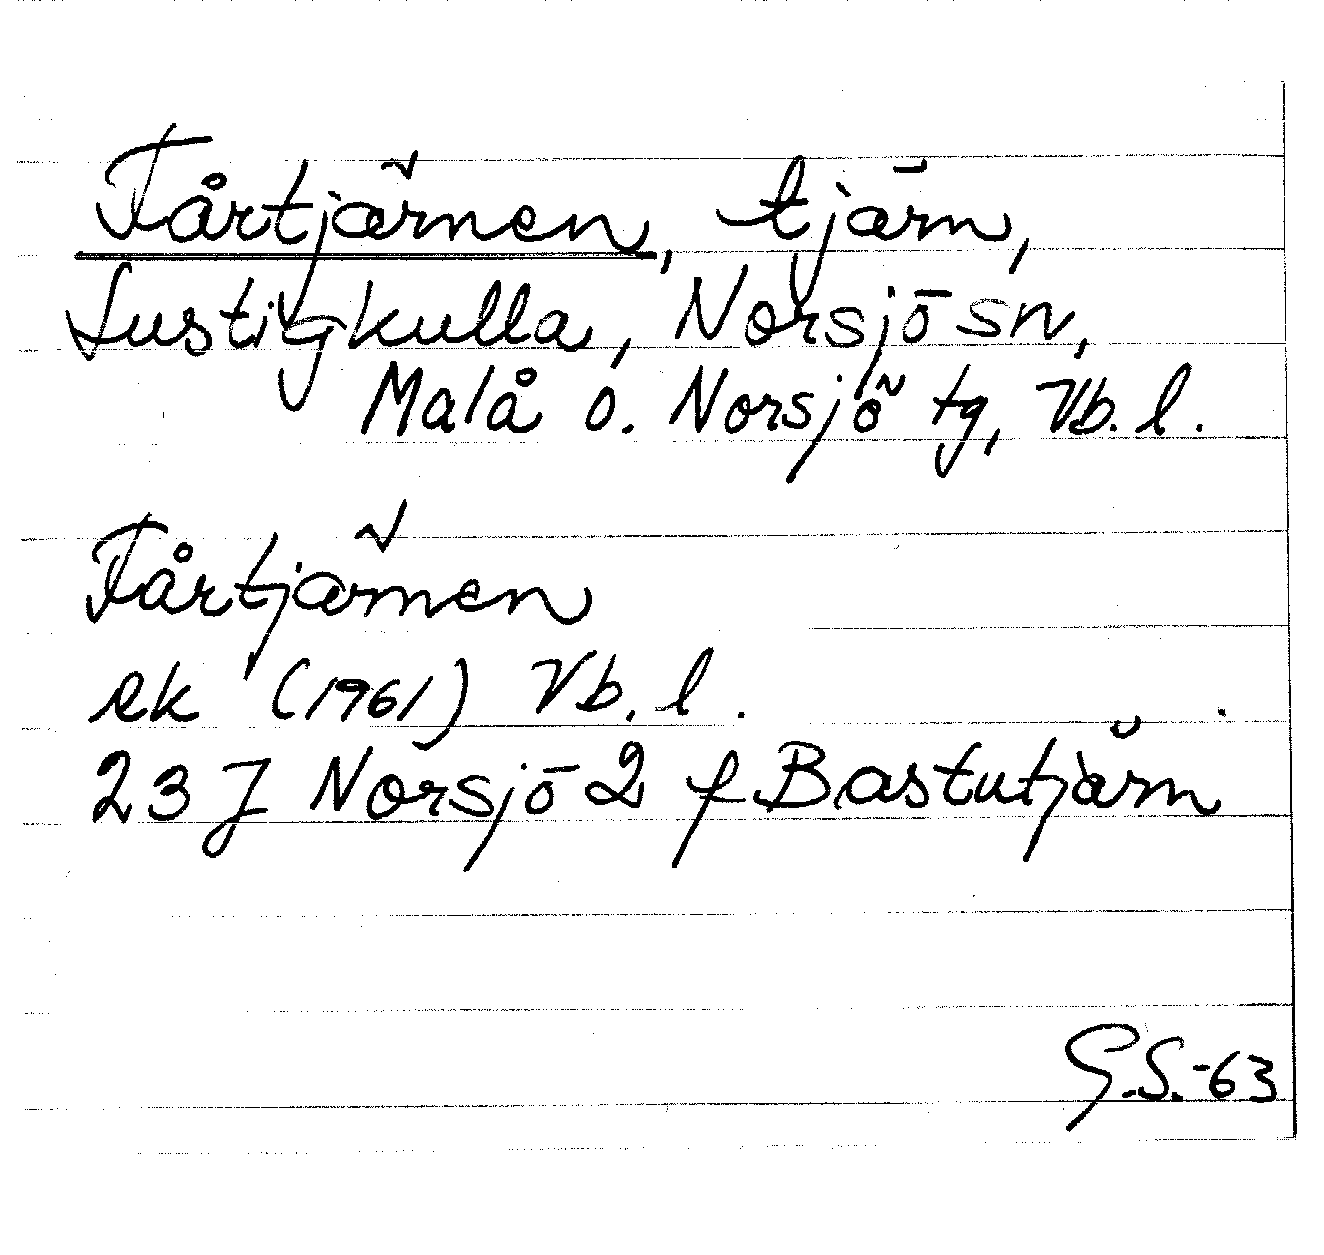 Fårtjärnen, tjärn,
Lustigkulla, Norsjö sn,
Malå o. Norsjö tg, Vb. l.
Fårtjärnen
ek (1961) Vb. l.
23 J Norsjö 2 f Bastutjärn
G.S.-63